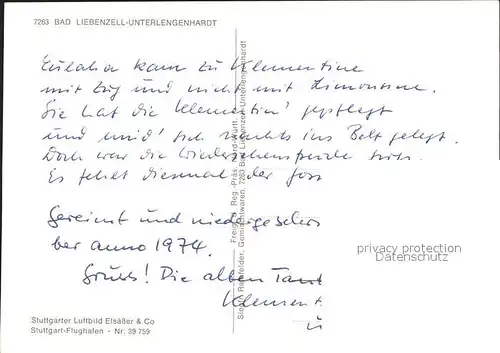 7263 BAD LIEBENZELL-UNTERLENGENHARDT
Eulalia kam zu Klementine
mit Zug und nicht mit Limousine.
Sie hat die Klementin' gepflegt
und sich nachts ins Bett gelegt.
Doch war die Wiedersehensfreude
Es fehlt diesmal der
Gereimt und niedergeschr
ber anno 1974.
Gruss! Die alten Tant
Klement
u
Freig. d. Reg.-Präs. Nord-Württ.
Gemischtwaren, 7263 Bad Liebenzell-Unterlengenhardt
privacy protection
Datenschutz
Stuttgarter Luftbild Elsäßer & Co
Stuttgart-Flughafen - Nr. 39 759